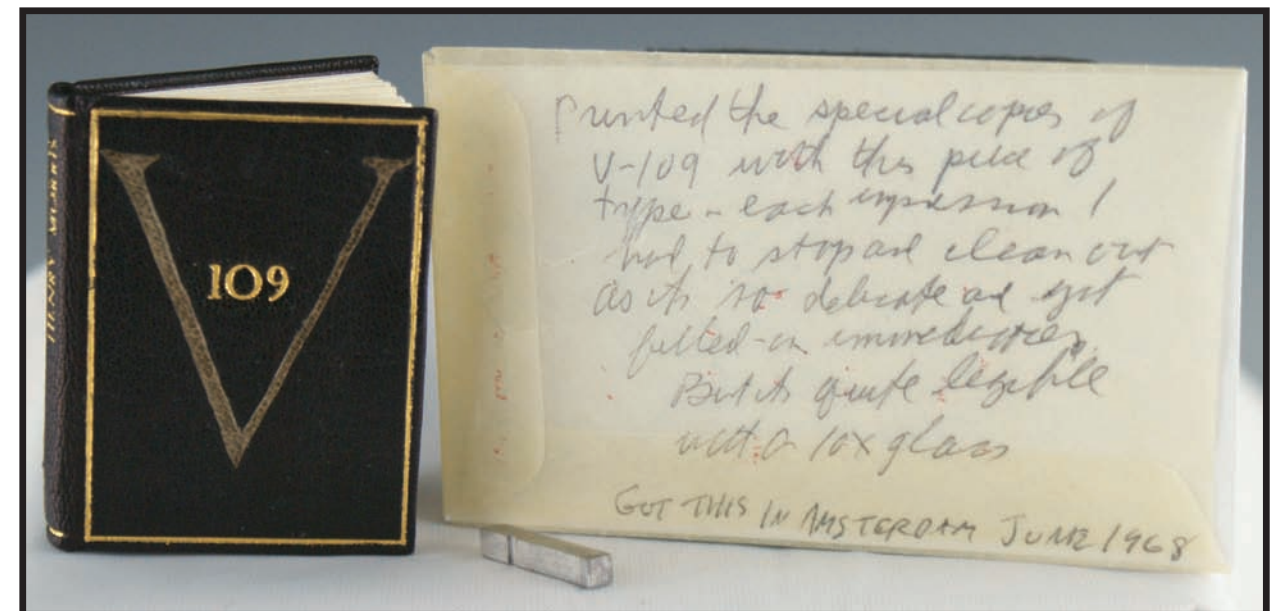 V
109
Printed the special copies of
V-109 with this piece of
type - each impression I
had to stop and clean out
as it's so delicate and got
filled-in immediately.
But it's quite legible
with a 10x glass
GOT THIS IN AMSTERDAM JUNE 1968